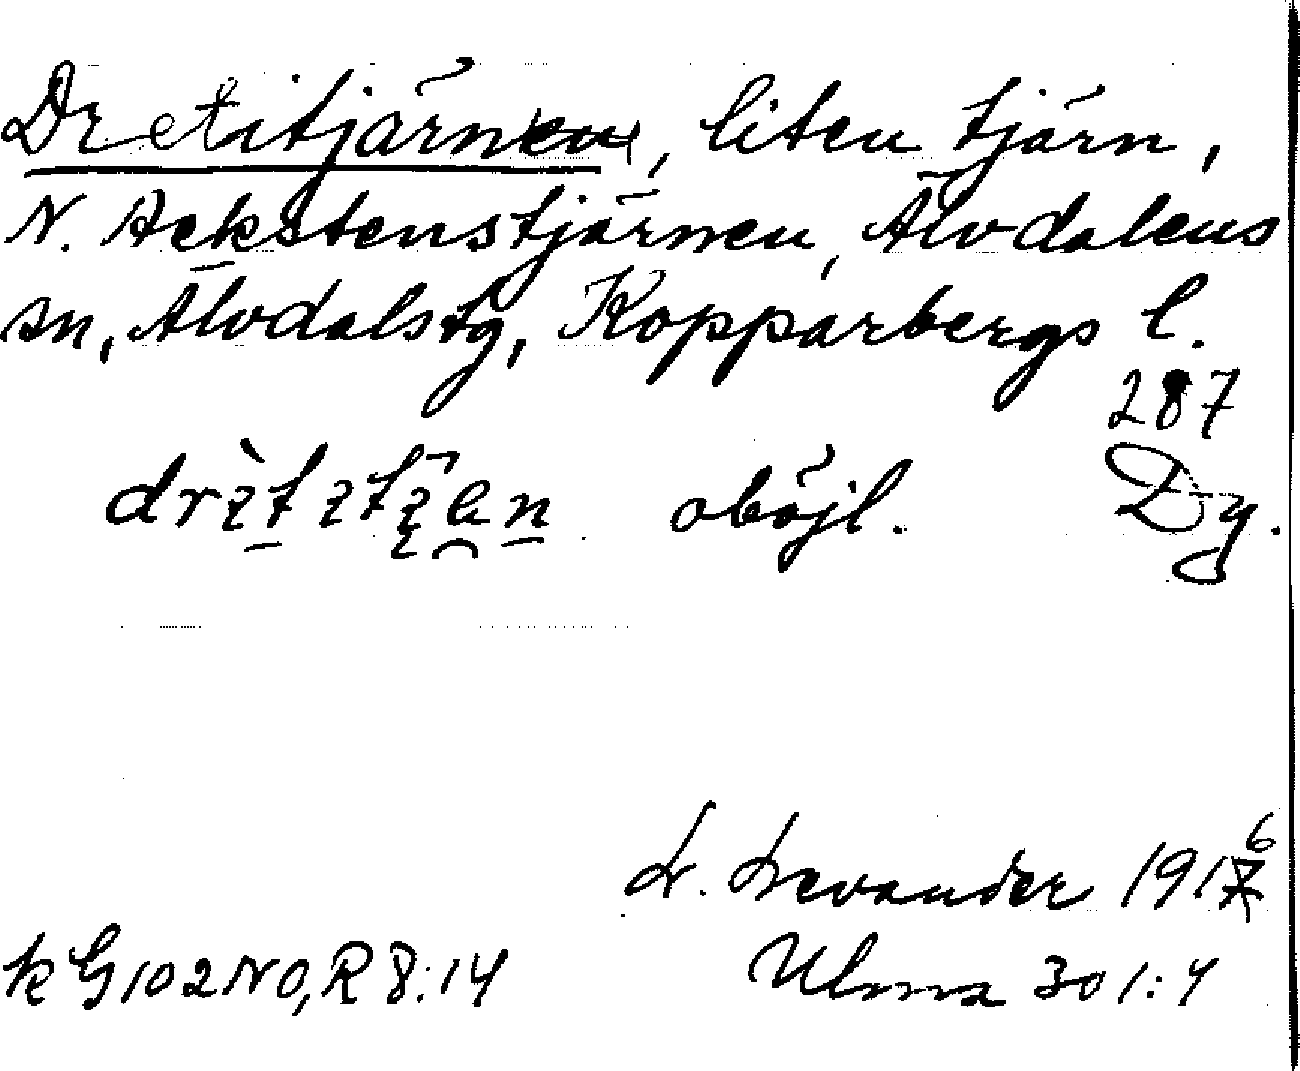 Dretitjärnen, liten tjärn,
N. Aekstenstjärnen, Älvdalens
sn, Älvdals tg, Kopparbergs l.
287
oböjl. Dy.
L. Levander 1916
k G 102 NO, R 8:14 Ulma 301:4